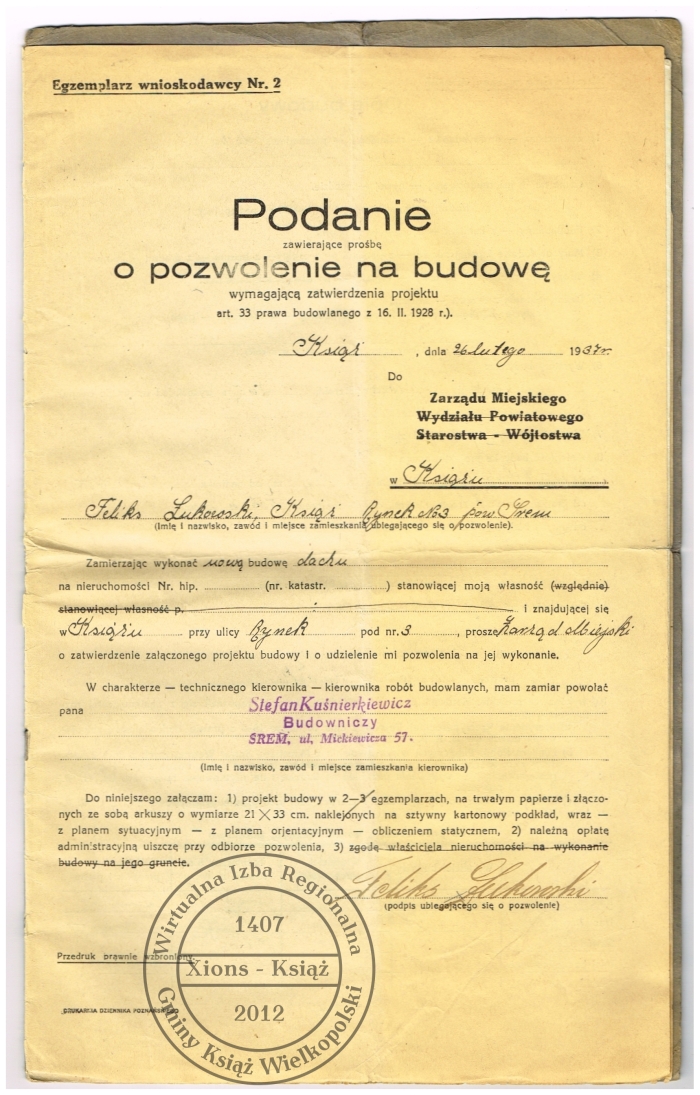 Egzemplarz wnioskodawcy Nr. 2
Podanie
zawierające prośbę
o pozwolenie na budowę
wymagającą zatwierdzenia projektu
art. 33 prawa budowlanego z 16. II. 1928 r.).
Książ, dnia 26 lutego 1937r.
Do
Zarządu Miejskiego
Wydziału Powiatowego
Starostwa - Wójtostwa
w Książu
Feliks Lukowski, Książ Rynek No3 pow. Śrem
(Imię i nazwisko, zawód i miejsce zamieszkania ubiegającego się o pozwolenie).
Zamierzając wykonać nową budowę dachu
na nieruchomości Nr. hip. (nr. katastr. ) stanowiącej moją własność (względnie)
stanowiącej własność p. i znajdującej się
w Książu przy ulicy Rynek pod nr. 3, proszę Zarząd Miejski
o zatwierdzenie załączonego projektu budowy i o udzielenie mi pozwolenia na jej wykonanie.
W charakterze — technicznego kierownika — kierownika robót budowlanych, mam zamiar powołać
pana Stefan Kuśnierkiewicz
Budowniczy
ŚREM, ul. Mickiewicza 57.
(Imię i nazwisko, zawód i miejsce zamieszkania kierownika)
Do niniejszego załączam: 1) projekt budowy w 2—3 egzemplarzach, na trwałym papierze i złączo-
nych ze sobą arkuszy o wymiarze 21 X 33 cm. naklejonych na sztywny kartonowy podkład, wraz —
z planem sytuacyjnym — z planem orjentacyjnym — obliczeniem statycznem, 2) należną opłatę
administracyjną uiszczę przy odbiorze pozwolenia, 3) zgodę właściciela nieruchomości na wykonanie
budowy na jego gruncie.
Feliks Lukowski
(podpis ubiegającego się o pozwolenie)
Przedruk prawnie wzbroniony.
DRUKARNIA DZIENNIKA POZNAŃSKIEGO
Wirtualna Izba Regionalna
1407
Xions - Książ
2012
Gminy Książ Wielkopolski